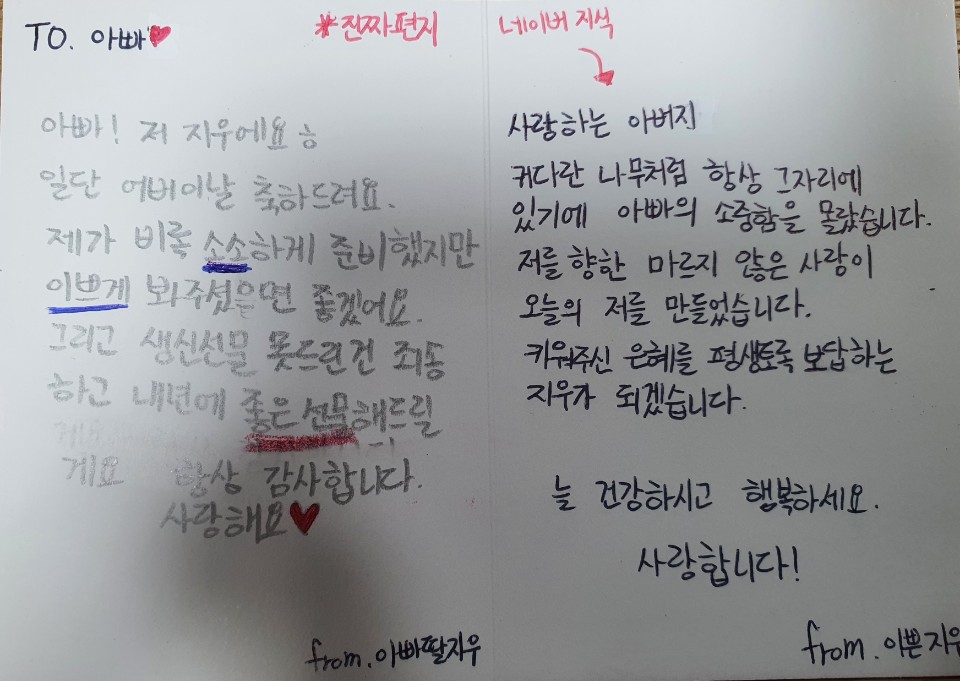 TO. 아빠♥
*진짜편지
아빠! 저 지우에요ㅎ
일단 어버이날 축하드려요.
제가 비록 소소하게 준비했지만
이쁘게 봐주셨으면 좋겠어요.
그리고 생신선물 못드린건 죄송
하고 내년에 좋은 선물해드릴
게요 항상 감사합니다.
사랑해요♥
from. 아빠딸지우
네이버 지식
사랑하는 아버지
커다란 나무처럼 항상 그자리에
있기에 아빠의 소중함을 몰랐습니다.
저를 향한 마르지 않은 사랑이
오늘의 저를 만들었습니다.
키워주신 은혜를 평생토록 보답하는
지우가 되겠습니다.
늘 건강하시고 행복하세요.
사랑합니다!
from. 이쁜지우